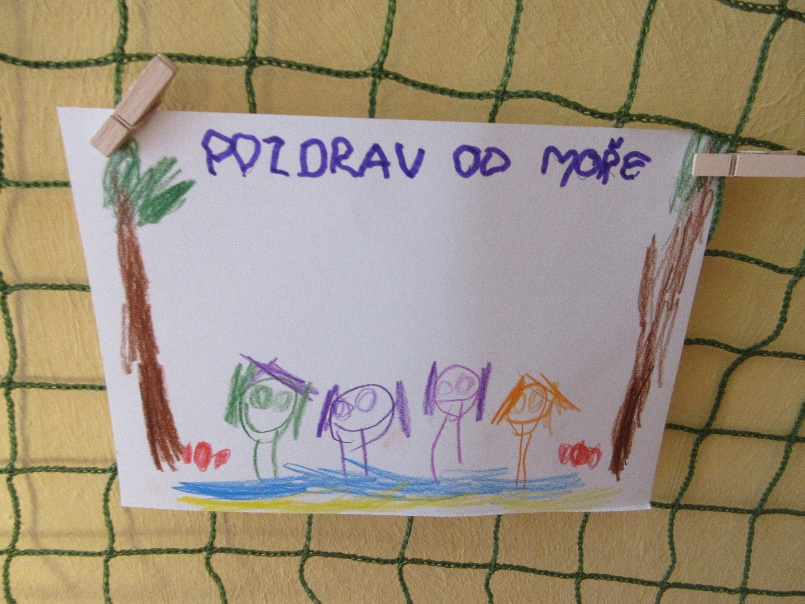 POZDRAV OD MOŘE